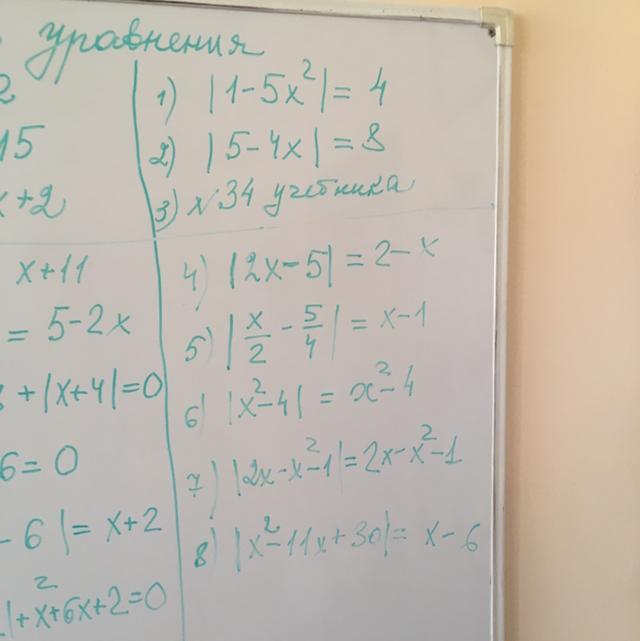 уравнения
2
15
x+2
x+11
= 5-2x
+|x+4|=0
6=0
-6|= x+2
|+x²+6x+2=0
1) |1-5x²|= 4
2) |5-4x|=8
3) №34 учебника
4) |2x-5|=2-x
5) |x/2 - 5/4| = x-1
6) |x²-4| = x²-4
7) |2x-x²-1|=2x-x²-1
8) |x²-11x+30|= x-6